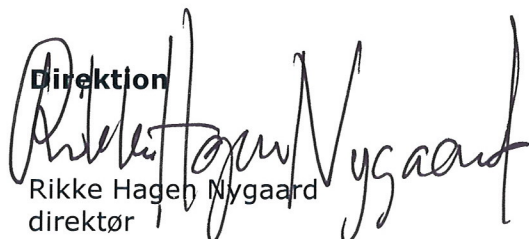 Direktion
Rikke Hagen Nygaard
Rikke Hagen Nygaard
direktør